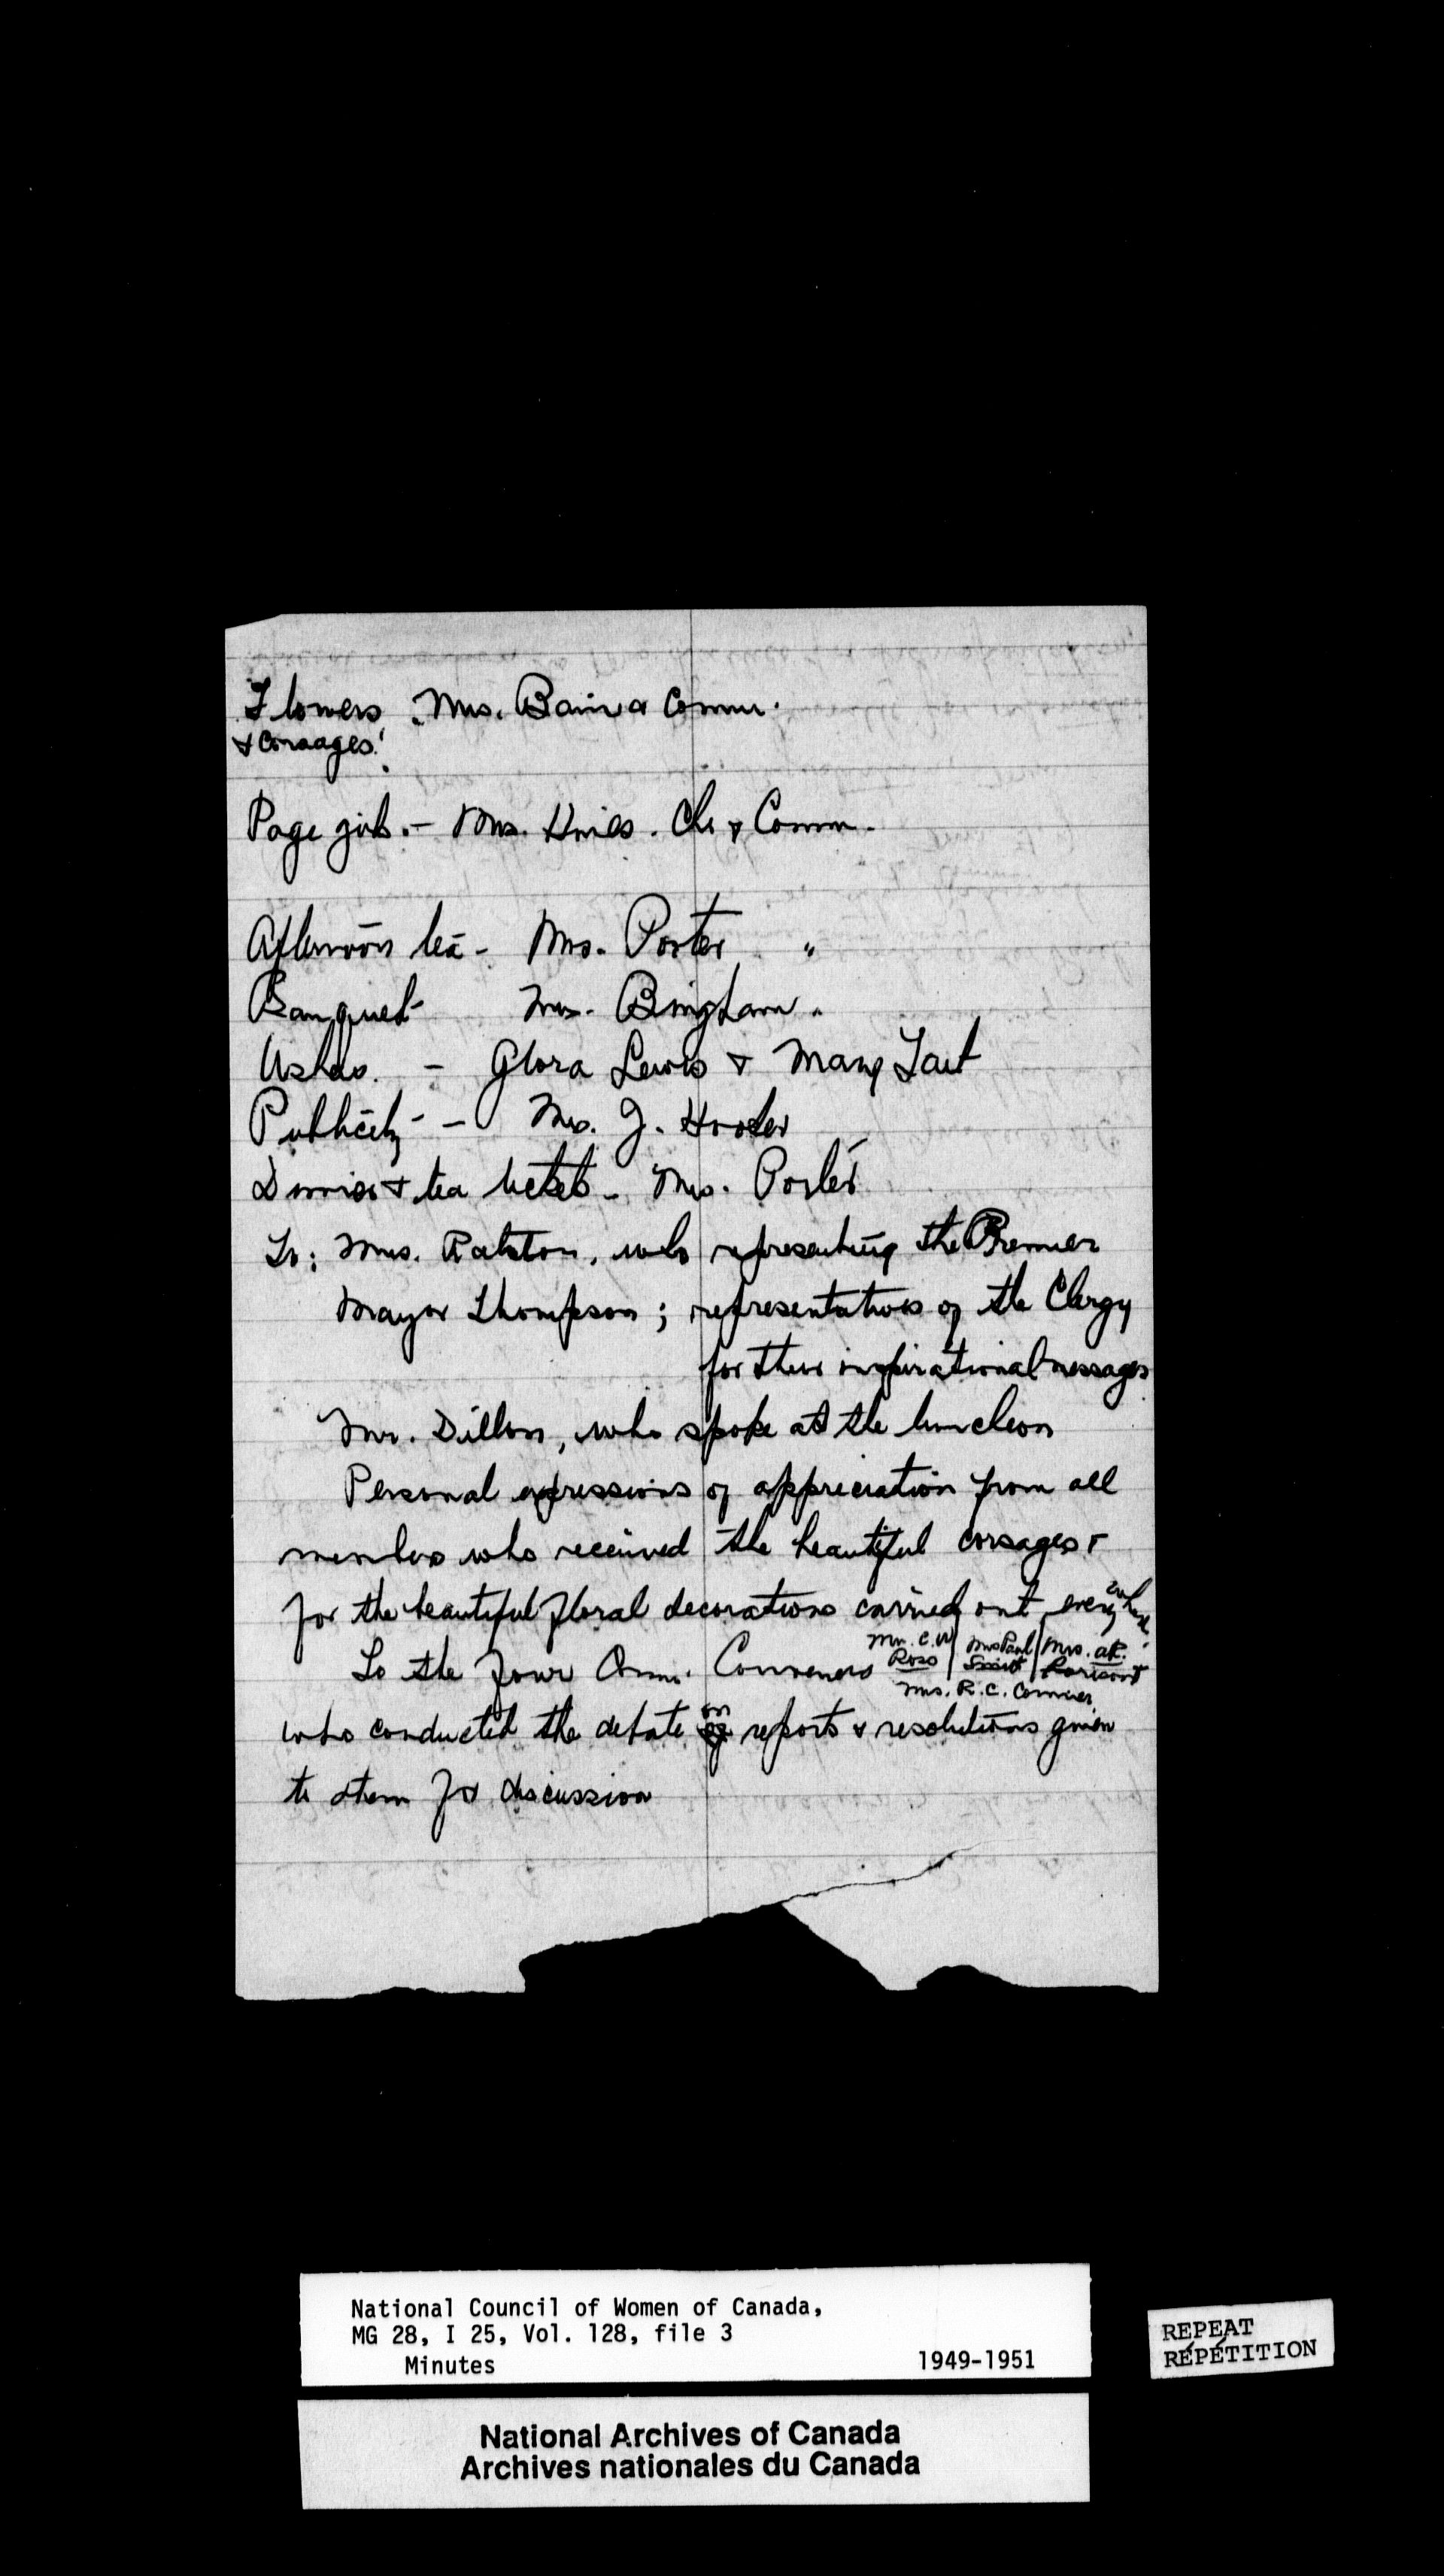 Flowers : Mrs. Baird & Comm.
& Corsages.
Page girls. - Mrs. Hines. Ch. & Comm.
Afternoon tea - Mrs. Porter "
Banquet Mrs. Bingham "
Ushers. - Glora Lewis & Mary Tait
Publicity - Mrs. J. Hooter
Dinner & tea tickets - Mrs. Porter
To: Mrs. Ralston, who representing the Premier
Mayor Thompson; representatives of the Clergy
for their inspirational messages
Mr. Dillon, who spoke at the luncheon
Personal expressions of appreciation from all
members who received the beautiful corsages &
for the beautiful floral decorations carried out everywhere.
To the four Comm. Conveners Mrs. C. W. Ross | Mrs Paul | Mrs. A.R.
Mrs. R. C. Cormier
who conducted the debate on reports & resolutions given
to them for discussion
National Council of Women of Canada,
MG 28, I 25, Vol. 128, file 3
Minutes 1949-1951
REPEAT
RÉPÉTITION
National Archives of Canada
Archives nationales du Canada